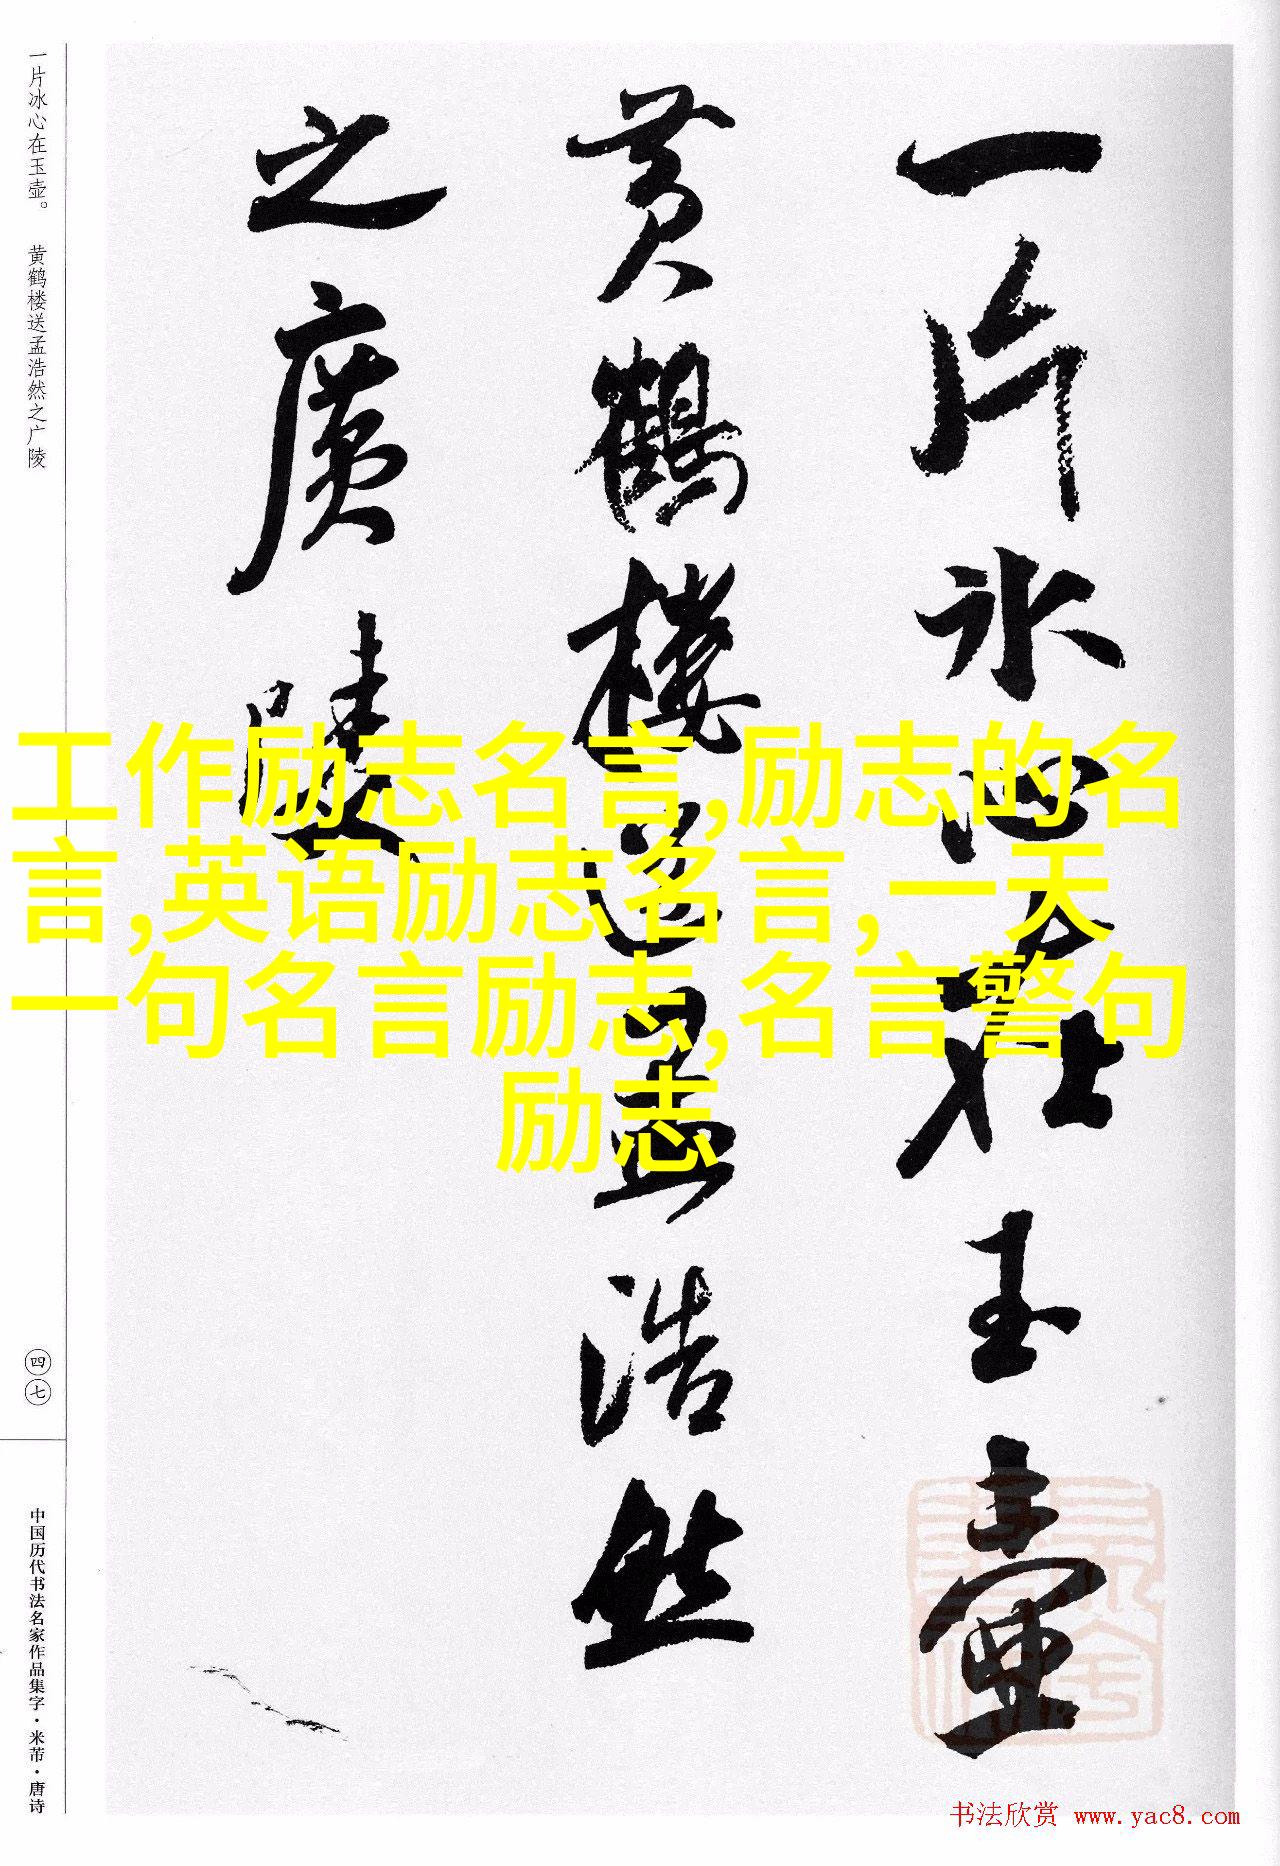 一片冰心在玉壶
黄鹤楼送孟浩然
之廣陵
一片冰心在玉壶。 黄鹤楼送孟浩然之广陵
四七
中国历代书法名家作品集字·米芾·唐诗
工作励志名言,励志的名
言,英语励志名言,一天
一句名言励志,名言警句
励志
书法欣赏 www.yac8.com